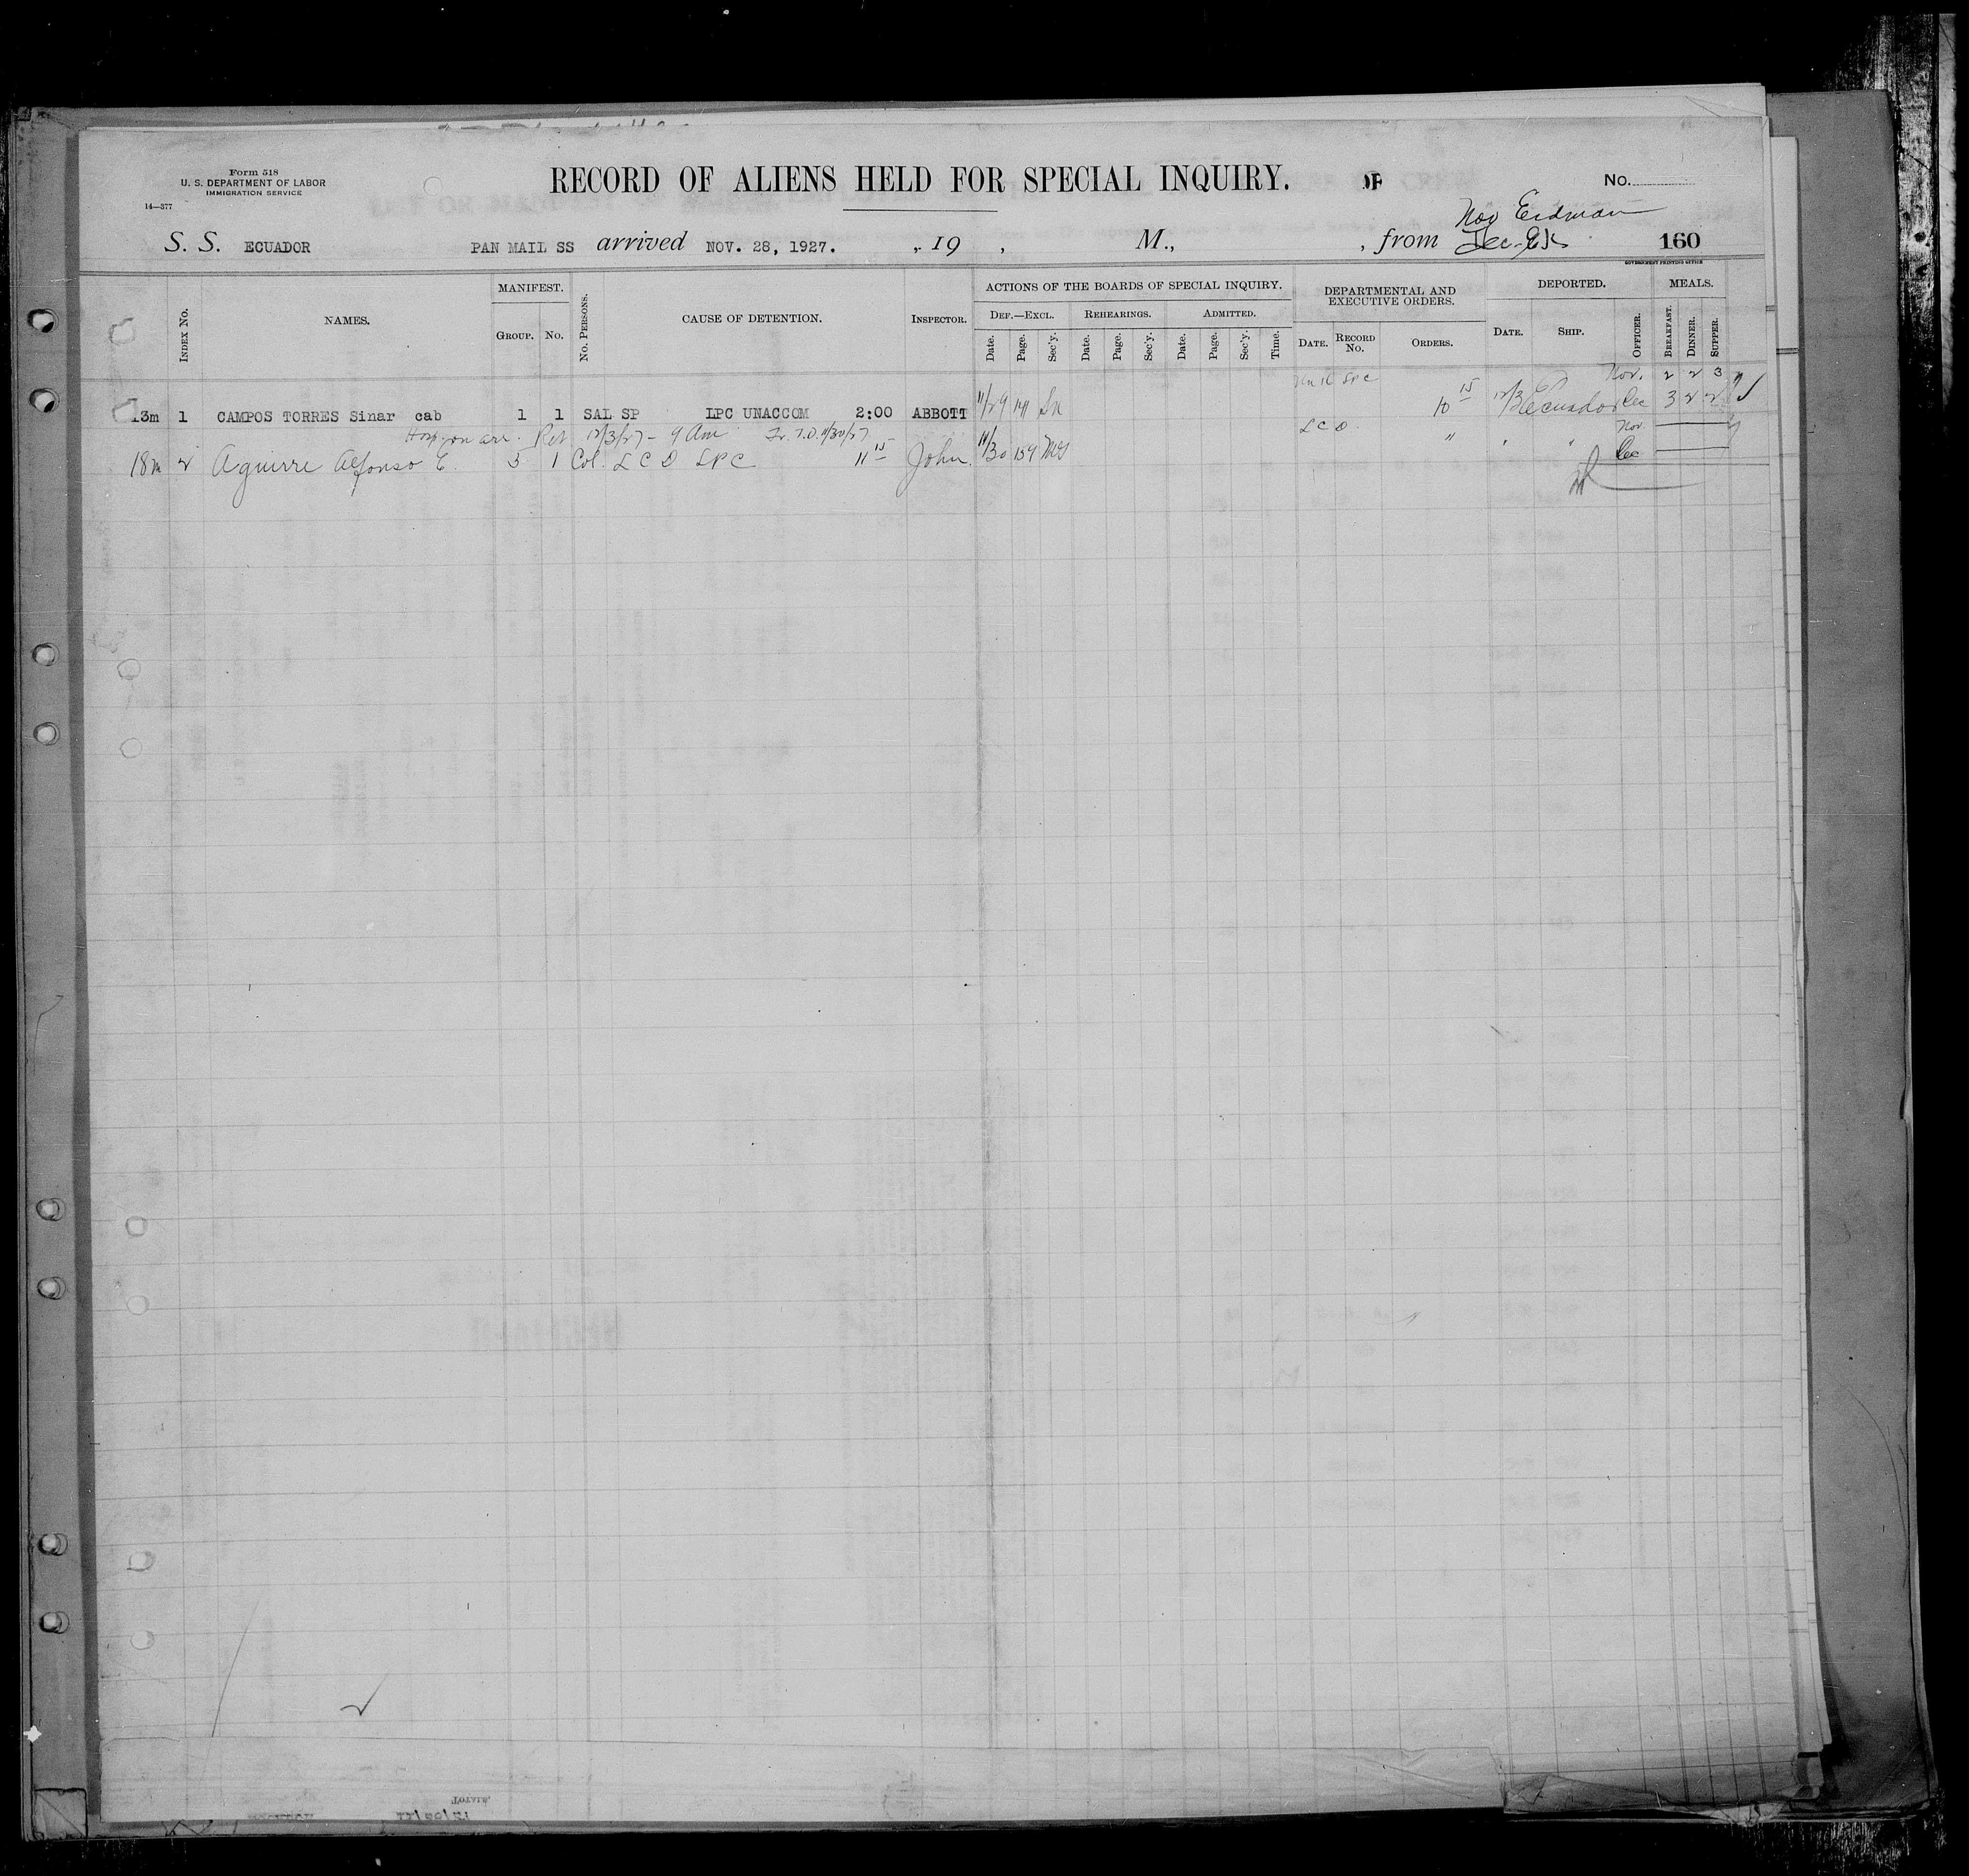 Form 518
U. S. DEPARTMENT OF LABOR
IMMIGRATION SERVICE
14—377
RECORD OF ALIENS HELD FOR SPECIAL INQUIRY.
No.
Nov Erdman
S. S. ECUADOR PAN MAIL SS arrived NOV. 28, 1927. , 19 , M., , from
160
GOVERNMENT PRINTING OFFICE
INDEX No. NAMES. MANIFEST. GROUP. No. No. PERSONS. CAUSE OF DETENTION. INSPECTOR. ACTIONS OF THE BOARDS OF SPECIAL INQUIRY. DEPARTMENTAL AND EXECUTIVE ORDERS. DEPORTED. MEALS.
DEF.—EXCL. REHEARINGS. ADMITTED.
Date. Page. Sec'y. Date. Page. Sec'y. Date. Page. Sec'y. Time. DATE. RECORD No. ORDERS. DATE. SHIP. OFFICER. BREAKFAST. DINNER. SUPPER.
LPC Nov. 2 2 3
13m 1 CAMPOS TORRES Sinar cab 1 1 SAL SP LPC UNACCOM 2:00 ABBOTT 11/29 141 10 15 12/3 Ecuador Dec 3 2 2
Hosp on arr. Ret 12/3/27 - 9 Am 11/30/27 LCD Nov
18m 2 Aguirre Alfonso E. 3 1 Col. LCD LPC 11 15 John. 11/30 159 " " " Dec
TOTALS.
11/28/27